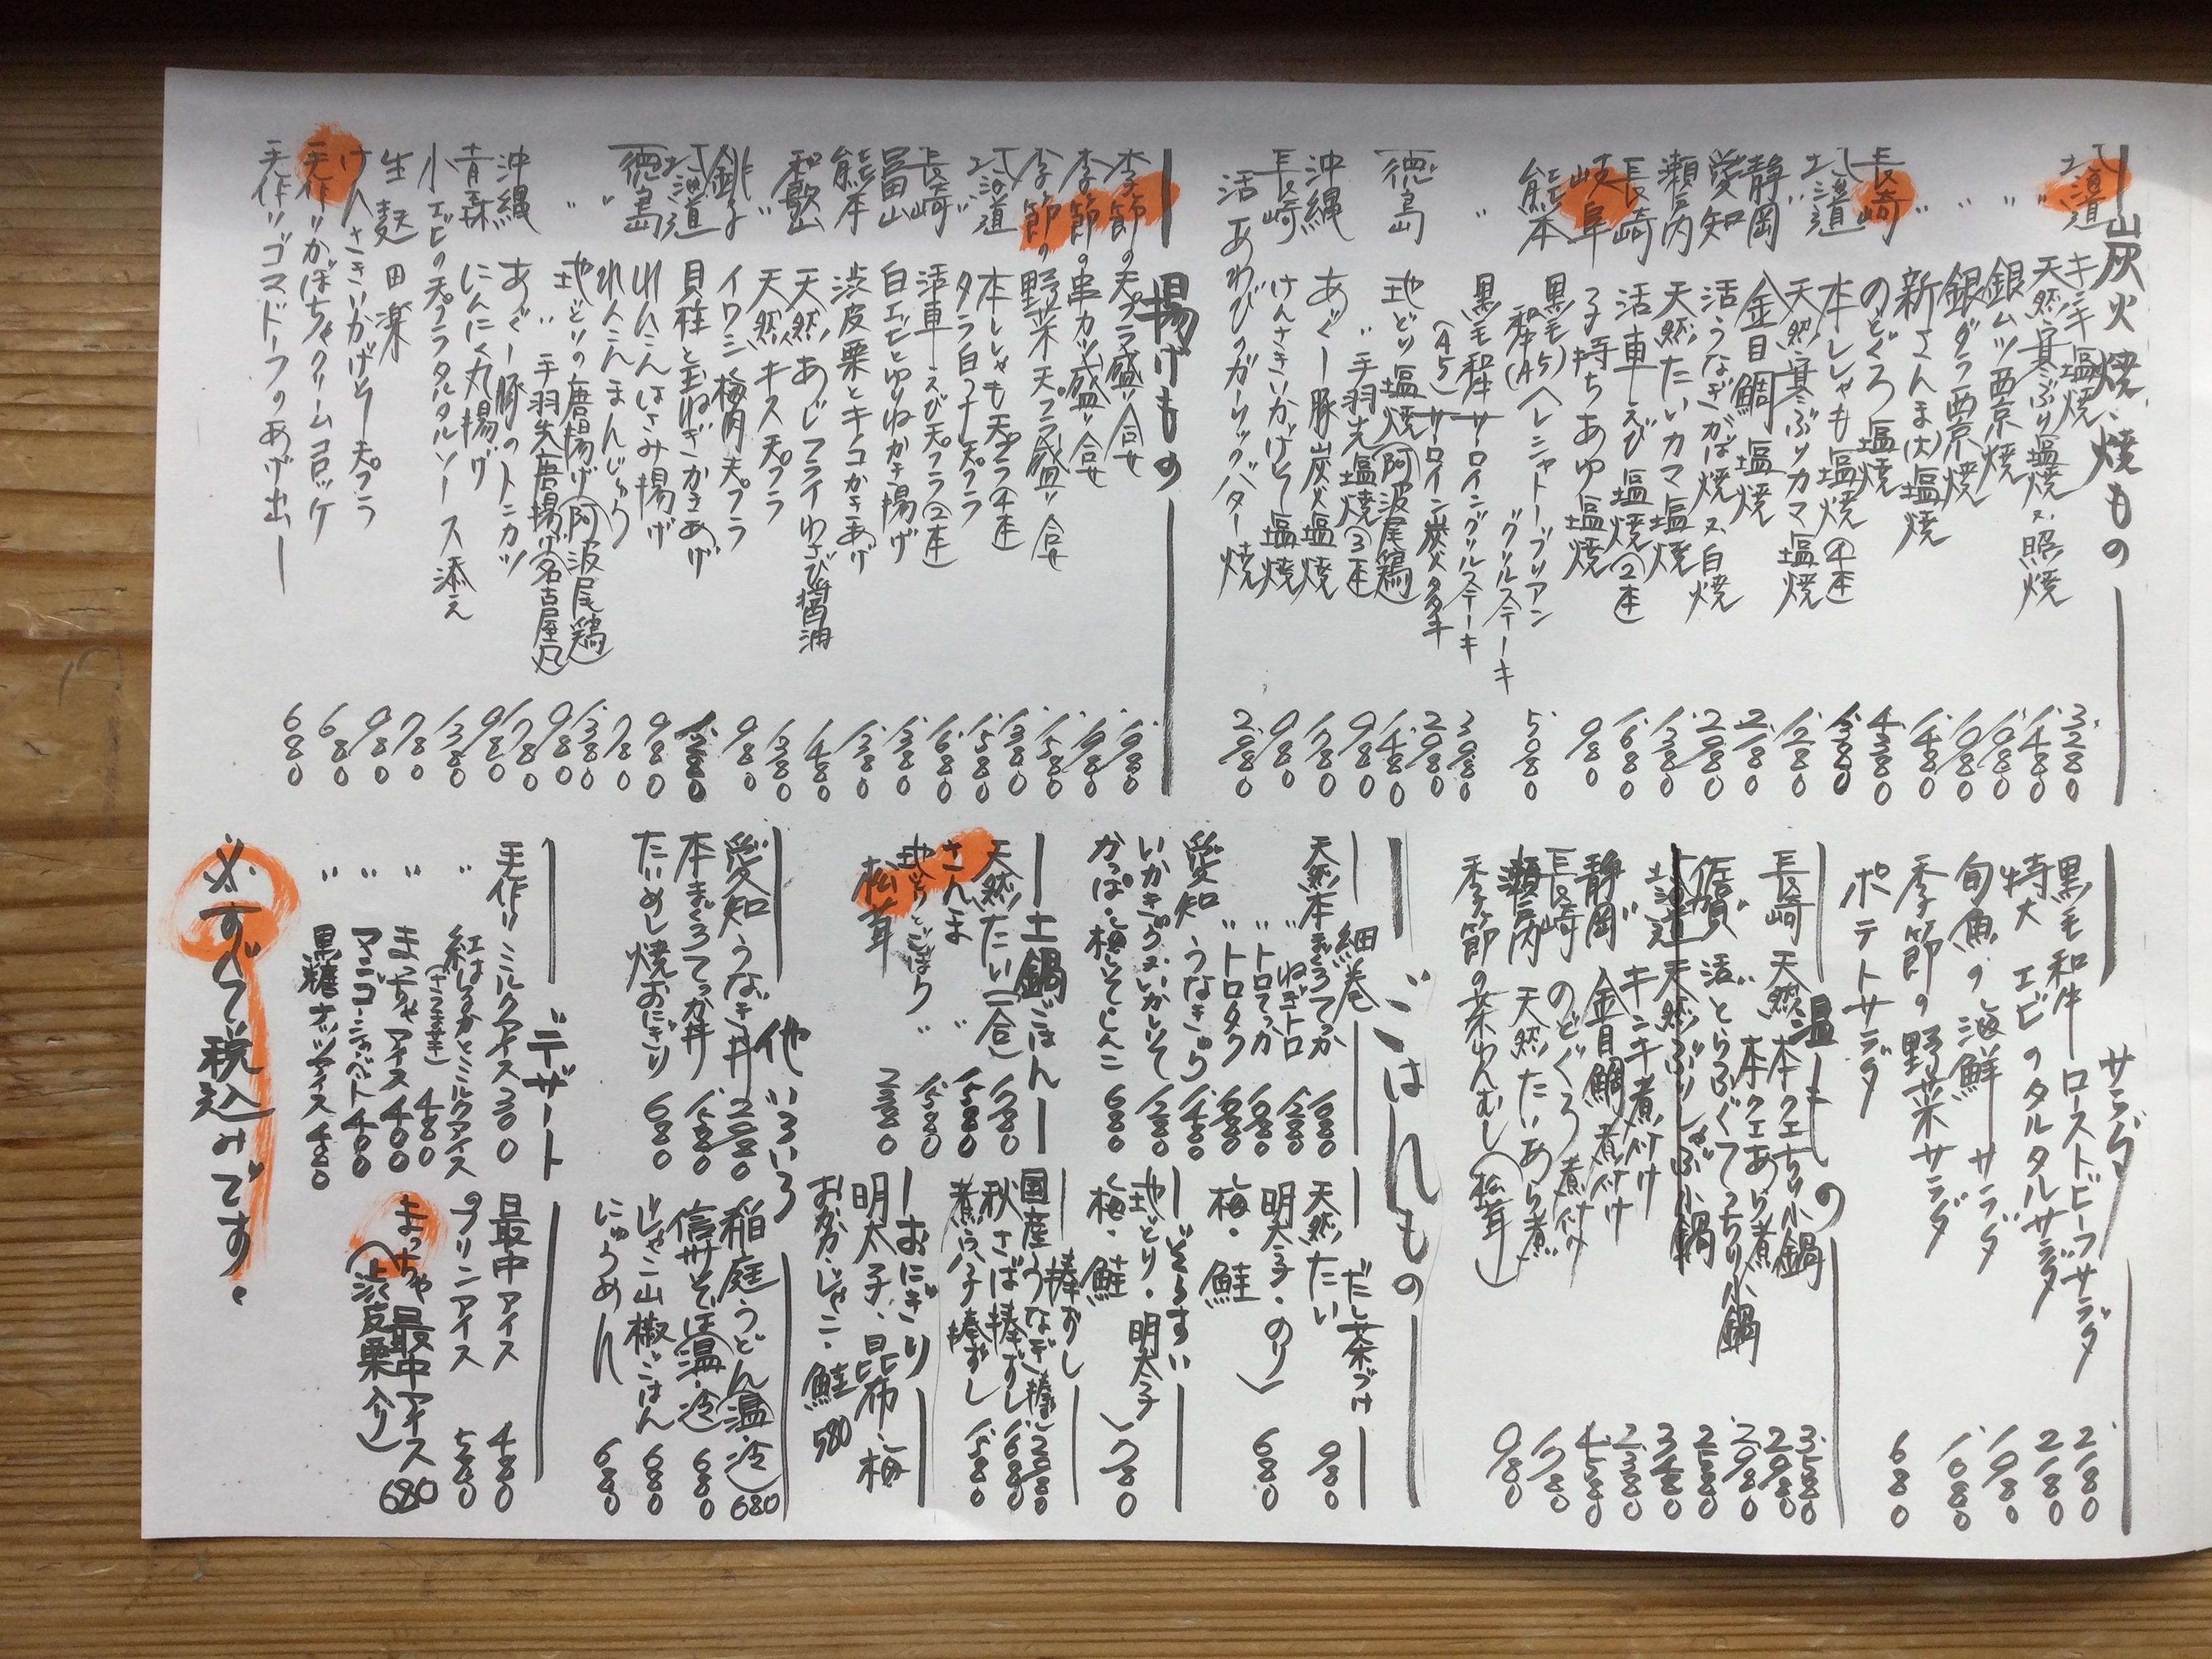 炭火焼・焼もの
北海道 キンキ塩焼 3280
〃 天然寒ぶり塩焼又照焼 1480
〃 銀ムツ西京焼 1680
〃 銀ダラ西京焼
〃 新さんま(大)塩焼 1480
長崎 のどぐろ塩焼 4380
北海道 本ししゃも塩焼④本
〃 天然寒ぶりカマ塩焼 1280
静岡 金目鯛塩焼 2780
愛知 活うなぎかば焼又白焼
瀬戸内 天然たいカマ塩焼 1380
長崎 活車えび塩焼②本 1680
岐阜 子持ちあゆ塩焼 980
熊本 黒毛和牛(A5)ヘレシャトーブリアン
〃グリルステーキ 5080
〃 黒毛和牛サーロイングリルステーキ 3080
(A5)サーロイン炭火タタキ 2980
徳島 地どり塩焼(阿波尾鶏) 1480
〃 手羽先塩焼③本 980
沖縄 あぐー豚炭火塩焼 1780
長崎 けんさきいかげそ塩焼 980
活あわびのガーリックバター焼
揚げもの
季節の天プラ盛り合せ
季節の串カツ盛り合せ
季節の野菜天プラ盛り合せ 1580
北海道 本ししゃも天プラ④本 1380
〃 タラ白子天プラ 1580
長崎 活車えび天プラ②本 1680
富山 白エビとゆりねかき揚げ 1380
熊本 渋皮栗とキノコかきあげ 1380
和歌山 天然あじフライわさび醤油 1480
〃 天然キス天プラ 1380
銚子 イワシ梅肉天プラ 980
北海道 貝柱と玉ねぎかきあげ
れんこんはさみ揚げ 980
れんこんまんじゅう 780
徳島 地どりの唐揚げ(阿波尾鶏) 1380
〃 〃手羽先唐揚げ(名古屋風) 980
沖縄 あぐー豚のトンカツ 1780
青森 にんにく丸揚げ 980
小エビの天プラタルタルソース添え 1380
生麩田楽 780
けんさきいかげそ天プラ 980
手作りかぼちゃクリームコロッケ 680
手作りゴマドーフのあげ出し 680
サラダ
黒毛和牛ローストビーフサラダ 2180
特大エビのタルタルサラダ 2180
旬魚の海鮮サラダ
季節の野菜サラダ
ポテトサラダ 680
温もの
長崎 天然本クエちり小鍋 3580
〃 本クエあら煮 2980
佐賀 活とらふぐてっちり小鍋
北海道 天然ぶりしゃぶ小鍋 2580
〃 キンキ煮付け 3480
静岡 金目鯛煮付け
長崎 のどぐろ煮付け 4580
瀬戸内 天然たいあら煮 1780
季節の茶わんむし(松茸) 980
ごはんもの
細巻
天然本まぐろてっか
〃ねぎトロ 1280
〃トロてっか
〃トロタク
愛知 うなきゅう 1480
いかきゅう・いかしそ 1280
かっぱ・梅しそ・しんこ 680
だし茶づけ
天然たい 980
明太子・のり
梅・鮭
680
ぞうすい
地どり・明太子
梅・鮭
780
土鍋ごはん
天然たい(一合)
さんま 〃 1580
地どりとごぼう 〃 1580
松茸
棒ずし
国産うなぎ棒ずし
秋さば棒ずし 1680
煮穴子棒ずし 1580
おにぎり
明太子・昆布・梅
おかか・じゃこ・鮭 580
他いろいろ
愛知 うなぎ丼
本まぐろてっか丼 1580
たいめし焼おにぎり 680
稲庭うどん(温・冷) 680
信州そば(温・冷) 680
じゃこ山椒ごはん 680
にゅうめん 680
デザート
手作りミルクアイス 300
〃 紅はるかとミルクアイス
(さつま芋) 480
〃 まっちゃアイス 400
〃 マンゴーシャーベット 400
〃 黒糖ナッツアイス 480
最中アイス 480
プリンアイス 580
まっちゃ最中アイス 680
(渋皮栗入り)
※すべて税込みです。